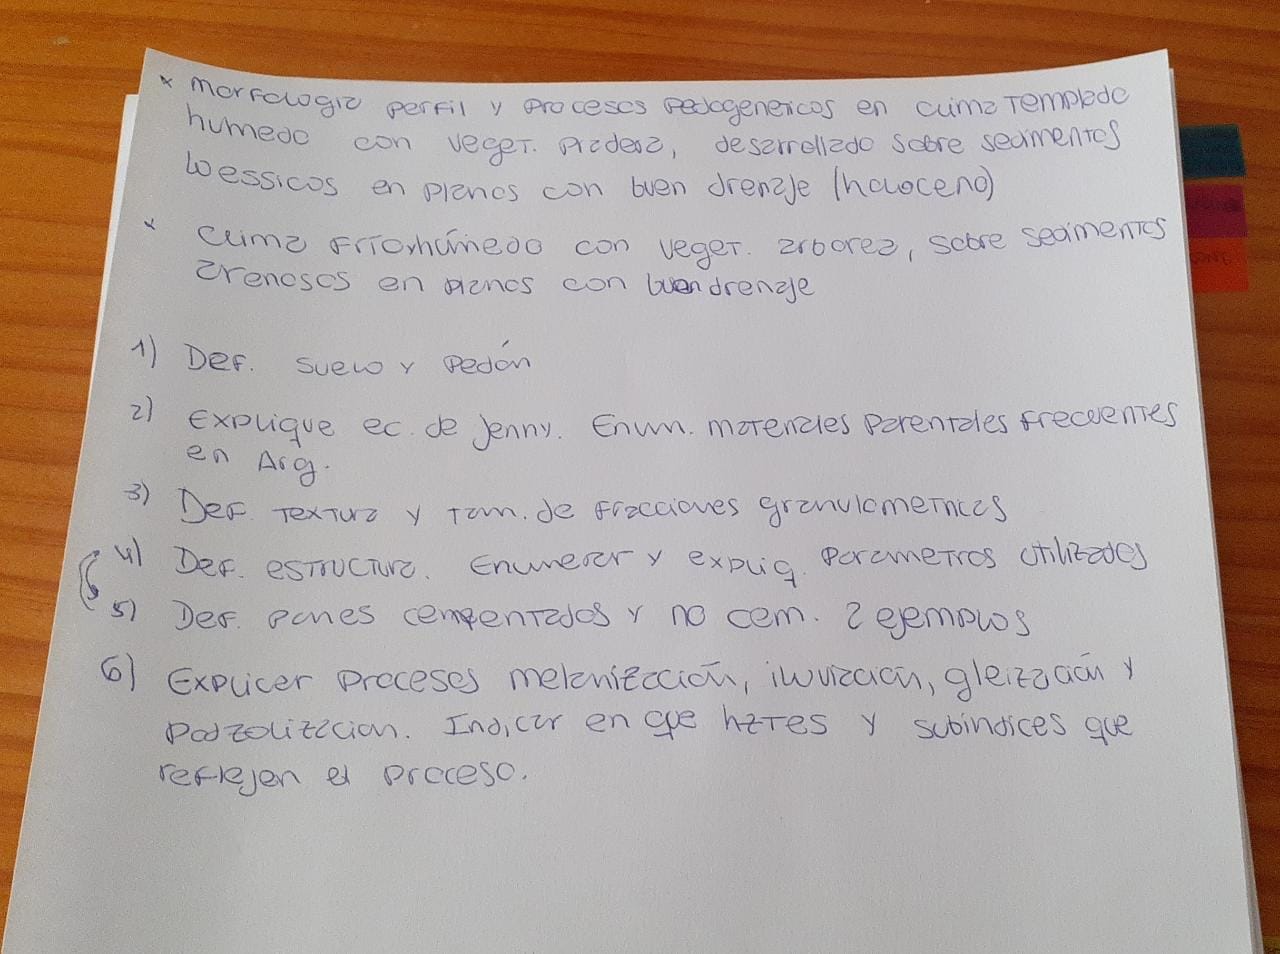 x Morfologia perfil y procesos pedogeneticos en clima templado
humedo con veget. pradera, desarrollado sobre sedimentos
loessicos en planos con buen drenaje (holoceno)
x Clima frío húmedo con veget. arborea, sobre sedimentos
arenosos en planos con buen drenaje
1) Def. suelo y pedón
2) Explique ec. de Jenny. Enum. materiales parentales frecuentes
en Arg.
3) Def. textura y tam. de fracciones granulometricas
4) Def. estructura. Enumerar y expliq. parametros utilizados
5) Def. panes cementados y no cem. 2 ejemplos
6) Explicar procesos melanización, iluviación, gleización y
podzolizacion. Indicar en que hztes y subindices que
reflejen el proceso.